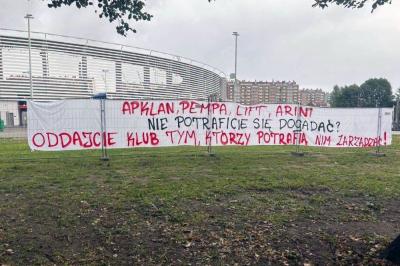 APKLAN, PEMPA, LIFT, ARINI
NIE POTRAFICIE SIĘ DOGADAĆ?
ODDAJCIE KLUB TYM, KTÓRZY POTRAFIĄ NIM ZARZĄDZAĆ!